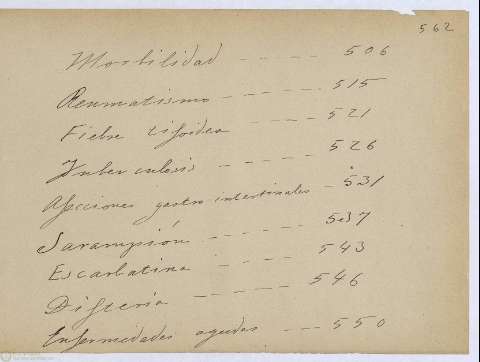 562
Morbilidad ----- 506
Reumatismo ------ 515
Fiebre tifoidea ---- 521
Tuberculosis ---- 526
Afecciones gastro intestinales - 531
Sarampión ----- 537
Escarlatina - ---- 543
Difteria ----- 546
Enfermedades agudas --- 550